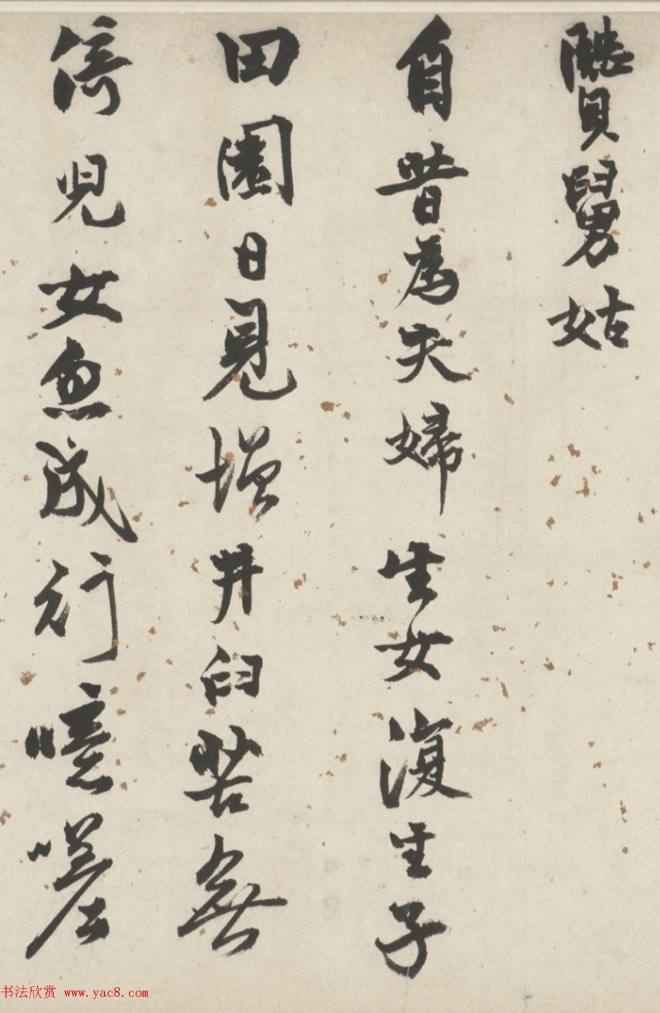 賢舅姑
自昔為夫婦生女復生子
田園日見增井臼苦無
倚兒女忽成行噫嗟
书法欣赏 www.yac8.com